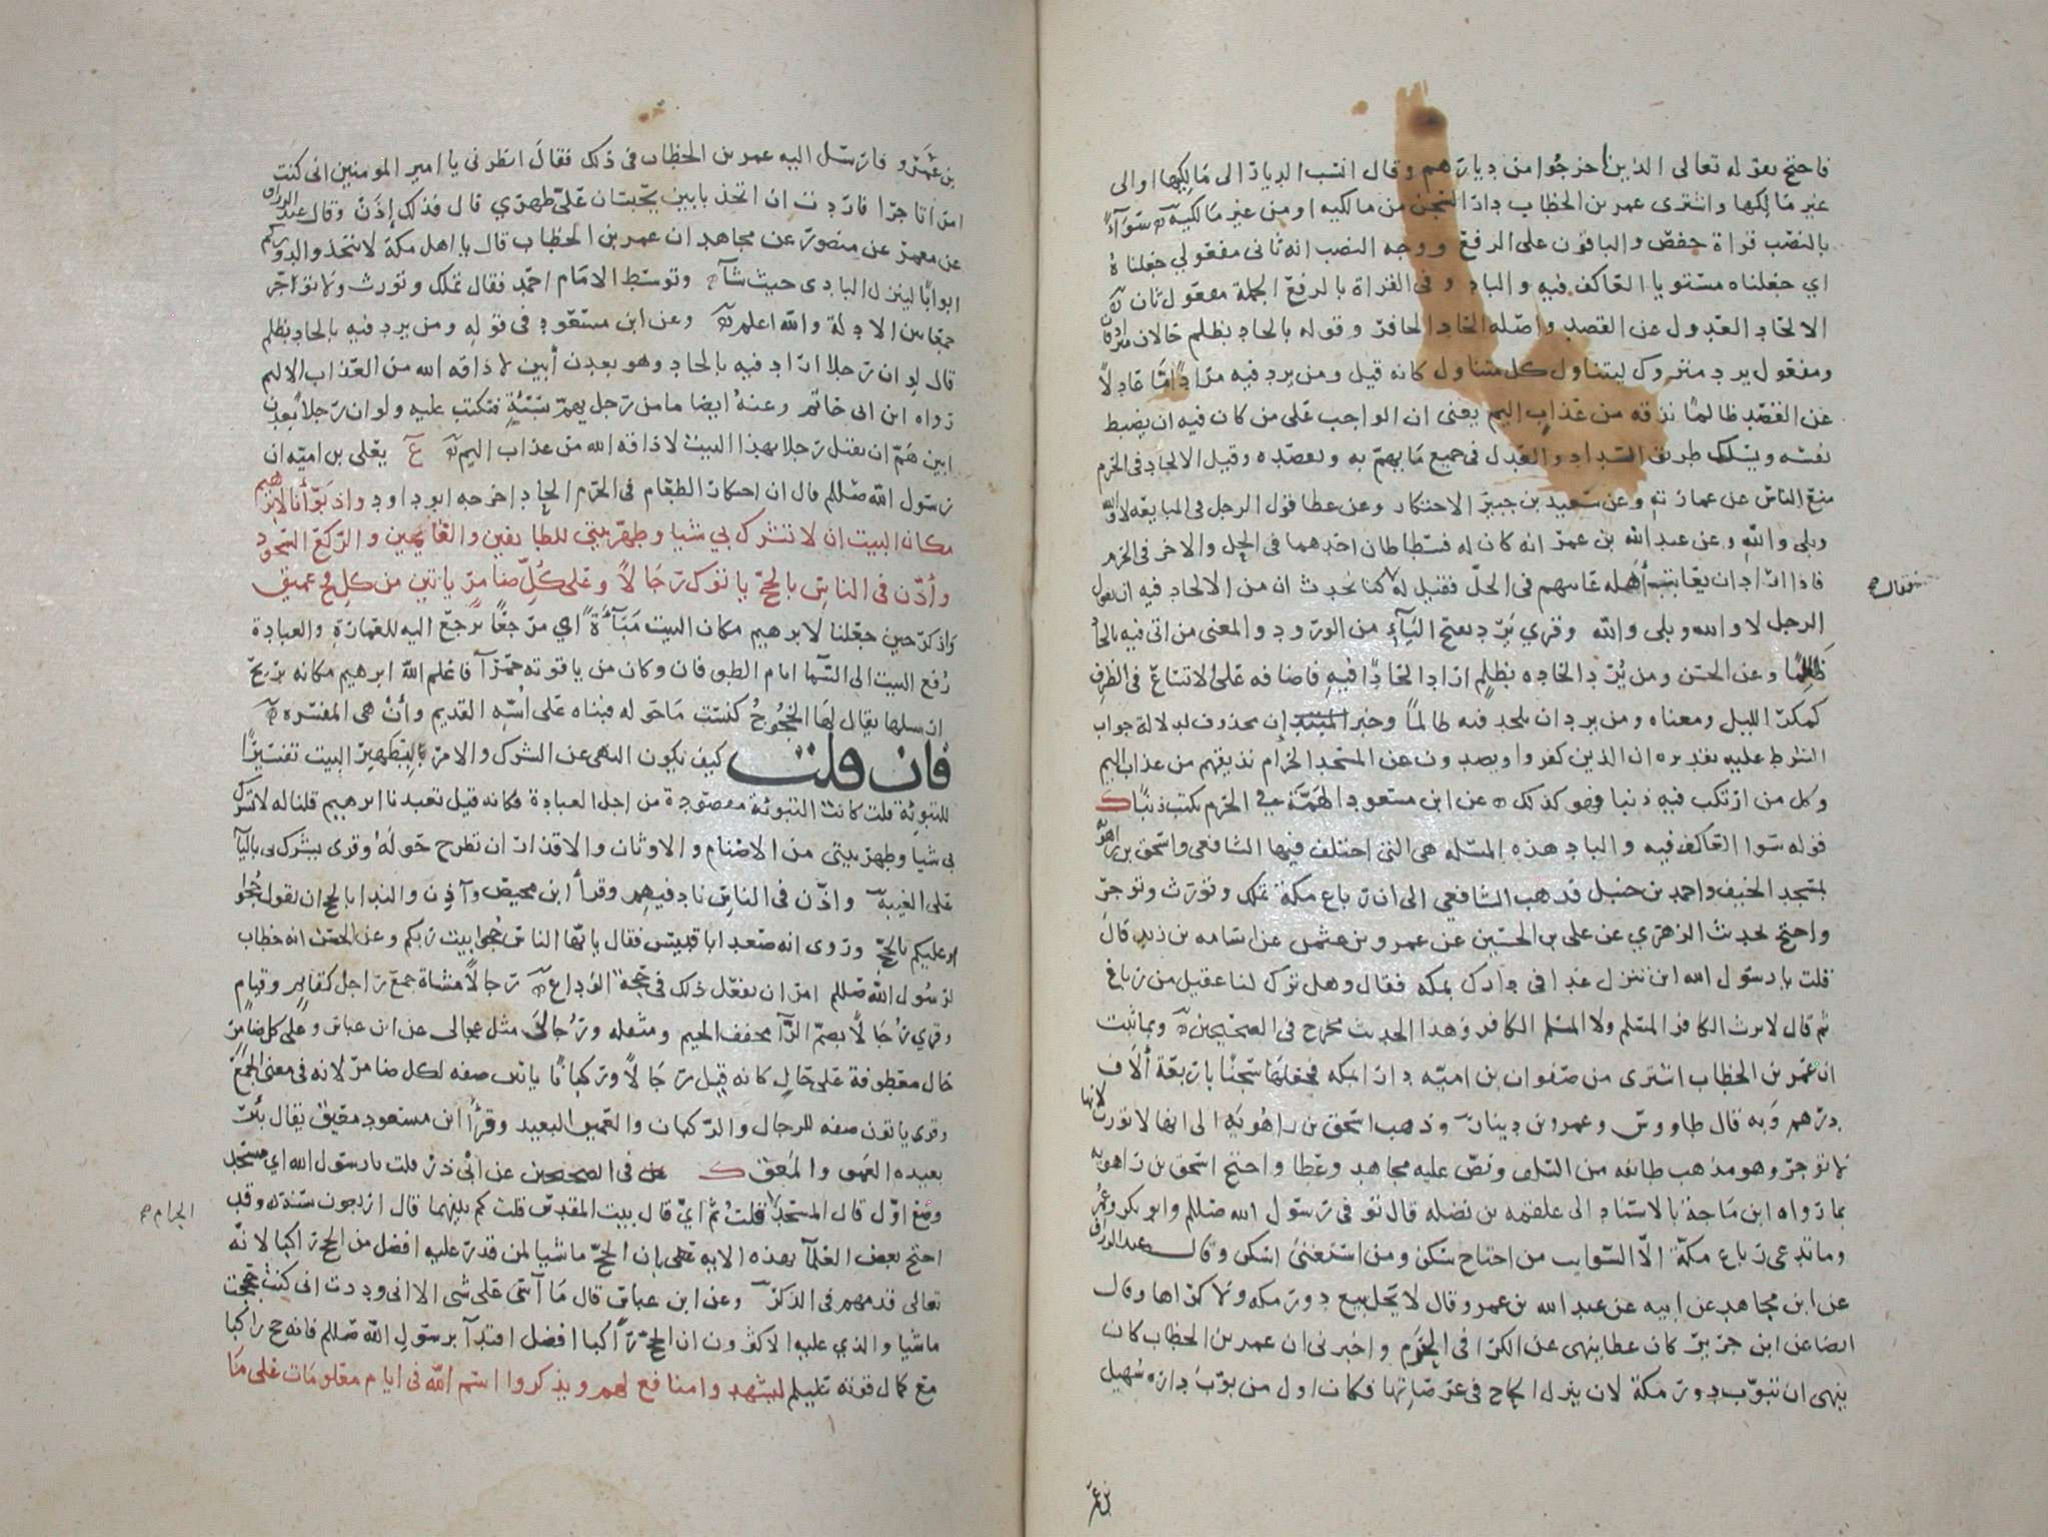 فاحتج بقوله تعالى الذين أخرجوا من ديارهم وقال انتسب الديار الى مالكها او الى
غير مالكها واشترى عمر بن الخطاب دار السجن من مالكيه او من غير مالكيه سوآءً
بالنصب قراة حفص والباقون على الرفع ووجه النصب انه ثاني مفعولي جعلناه
اي جعلناه مستويا العاكف فيه والباد وفى القراة بالرفع الجملة مفعول ثان
الالحاد العدول عن القصد واصله الحاد الحافر وقوله بالحاد بظلم حالان مترادفان
ومفعول يرد متروك ليتناول كل متناول كانه قيل ومن يرد فيه مرادًا مّا عادلًا
عن القصد ظالمًا نذقه من عذاب اليم يعنى ان الواجب على من كان فيه ان يضبط
نفسه ويسلك طريق السداد والعدل فى جميع ما يهم به ويقصده وقيل الالحاد فى الحرم
منع الناس عن عمارته وعن سعيد بن جبير الاحتكار وعن عطا قول الرجل فى المبايعه لا والله
وبلى والله وعن عبد الله بن عمر انه كان له فسطاطان احدهما فى الحل والاخر فى الحرم
فاذا اراد ان يعاتب أهله عاتبهم فى الحلّ فقيل له كنا نحدث ان من الالحاد فيه ان يقول
فقال
الرجل لا والله وبلى والله وقري يَرِد بفتح اليآء من الورود والمعنى من اتى فيه بالحاد
ظالمًا وعن الحسن ومن يُرد الحاده بظلم اراد الحادًا فيه فاضافه على الاتساع فى الظرف
كمكر الليل ومعناه ومن يرد ان يلحد فيه ظالمًا وخبر إن محذوف لدلالة جواب
الشرط عليه تقديره ان الذين كفروا ويصدون عن المسجد الحرام نذيقهم من عذاب اليم
وكل من ارتكب فيه ذنبا فهو كذلك عن ابن مسعود الهمّة في الحرم تكتب ذنبًا ك
قوله سوا العاكف فيه والباد هذه المسله هى التى اختلف فيها الشافعى واسحق بن راهويه
بمسجد الخيف واحمد بن حنبل فذهب الشافعي الى ان رباع مكة تملك وتورث وتوجر
واحتج بحديث الزهري عن على بن الحسين عن عمرو بن عثمن عن اسامه بن زيد قال
قلت يا رسول الله اين تنزل غدا فى دارك بمكه فقال وهل ترك لنا عقيل من رباع
ثم قال لا يرث الكافر المسلم ولا المسلم الكافر وهذا الحديث مخرج فى الصحيحين وبما ثبت
ان عمر بن الخطاب اشترى من صفوان بن اميه دارا بمكه فجعلها سجنًا باربعة ألاف
درهم وبه قال طاووس وعمرو بن دينار وذهب اسحق بن راهويه الى انها لا تورث لانها
لا توجر وهو مذهب طائفه من السلف ونص عليه مجاهد وعطا واحتج اسحق بن راهويه
بما رواه ابن ماجة بالاسناد الى علقمه بن نضله قال توفى رسول الله صللم وابو بكر وعمر
وما تدعى رباع مكة الّا السوايب من احتاج سكن ومن استغنى اسكن وقال عبد الرزاق
عن ابن مجاهد عن ابيه عن عبد الله بن عمرو قال لا يحل بيع دور مكه ولا كراها وقال
ايضا عن ابن جريج كان عطا ينهى عن الكرا فى الحرم واخبرنى ان عمر بن الخطاب كان
ينهى ان تبوّب دور مكة لان ينزل الحاج فى عرصاتها فكان اول من بوّب داره سهيل
بن عمر
بن عمرو فارسل اليه عمر بن الخطاب فى ذلك فقال انظرنى يا امير المومنين انى كنت
امرأ تاجرا فاردت ان اتخذ بابين يحبسان على ظهري قال فذلك إذن وقال عبد الرزاق
عن معمر عن منصور عن مجاهد ان عمر بن الخطاب قال يا اهل مكة لا تتخذوا لدوركم
ابوابًا لينزل البادى حيث شآء وتوسط الامام احمد فقال تملك وتورث ولا تواجر
جمعًا بين الادلة والله اعلم وعن ابن مسعود فى قوله ومن يرد فيه بالحاد بظلم
قال لو ان رجلا اراد فيه بالحاد وهو بعدن أبين لاذاقه الله من العذاب الاليم
رواه ابن ابى حاتم وعنهُ ايضا ما من رجل يهم بسيئةٍ فتكتب عليه ولو ان رجلا بعدن
ابين همّ ان يقتل رجلا بهذا البيت لاذاقه الله من عذاب اليم عٓ يعلى بن اميه ان
رسول الله صللم قال ان احتكار الطعام فى الحرم الحاد اخرجه ابو داود واذ بوّأنا لابرهيم
مكان البيت ان لا تشرك بي شيا وطهر بيتى للطايفين والقايمين والركع السجود
وأذّن فى الناس بالحجّ ياتوك رجالًا وعلى كلّ ضامر ياتين من كل فج عميق
واذكر حين جعلنا لابرهيم مكان البيت مَبآءَةً اي مرجعًا يرجع اليه للعمارة والعبادة
رُفع البيت الى السّما ايام الطوفان وكان من ياقوته حمرآ فاعلم الله ابرهيم مكانه بريح
ارسلها يقال لها الخجوج كنست ما حوله فبناه على اسّه القديم وأنْ هى المفسره
فان قلت كيف يكون النهى عن الشرك والامر بتطهير البيت تفسيرًا
للتبوئة قلت كانت التبوئة مقصودة من اجل العبادة فكانه قيل تعبدنا ابرهيم قلنا له لا تشرك
بى شيا وطهر بيتى من الاصنام والاوثان والاقذار ان تطرح حولهُ وقرى يشرك بى باليآ
على الغيبة واذّن فى الناس ناد فيهم وقرأ ابن محيصن وآذِن والندا بالحج ان يقول حُجّوا
او عليكم بالحجّ وروى انه صعد ابا قبيس فقال يايّها الناس حجوا بيت ربكم وعن الحسن انه خطاب
لرسُول الله صللم امر ان يفعل ذلك فى حجّة الوداع رجالًا مشاة جمع راجل كقايم وقيام
وقري رُجالًا بضمّ الرّآ مخفف الجيم ومثقله ورُجالَى مثل عجالى عن ابن عباس وعلى كل ضامر
حال معطوفة على حال كانه قيل رجالًا وركبانًا ياتين صفه لكل ضامر لانه فى معنى الجمع
وقرى ياتون صفه للرجال والركبان والعميق البعيد وقرأ ابن مسعود معيق يقال بئر
بعيده العمق والمعق ك فى الصحيحين عن ابى ذر قلت يا رسول الله اي مسجد
وضع اوّل قال المسجد قلتُ ثم ايّ قال بيت المقدس قلت كم بينهما قال اربعون سنة وقد
الحرام
احتج بعض العلمآ بهذه الايه على ان الحجّ ماشيا لمن قدر عليه افضل من الحج راكبا لانّه
تعالى قدمهم فى الذكر وعن ابن عباس قال ما آسى على شى الا انى وددت انى كنت حججت
ماشيا والذي عليه الاكثرون ان الحجّ راكبا افضل اقتدآ برسول الله صللم فانه حج راكبا
مع كمال قوته عليلم ليشهدوا منافع لهم ويذكروا اسم الله فى ايام معلومات على ما